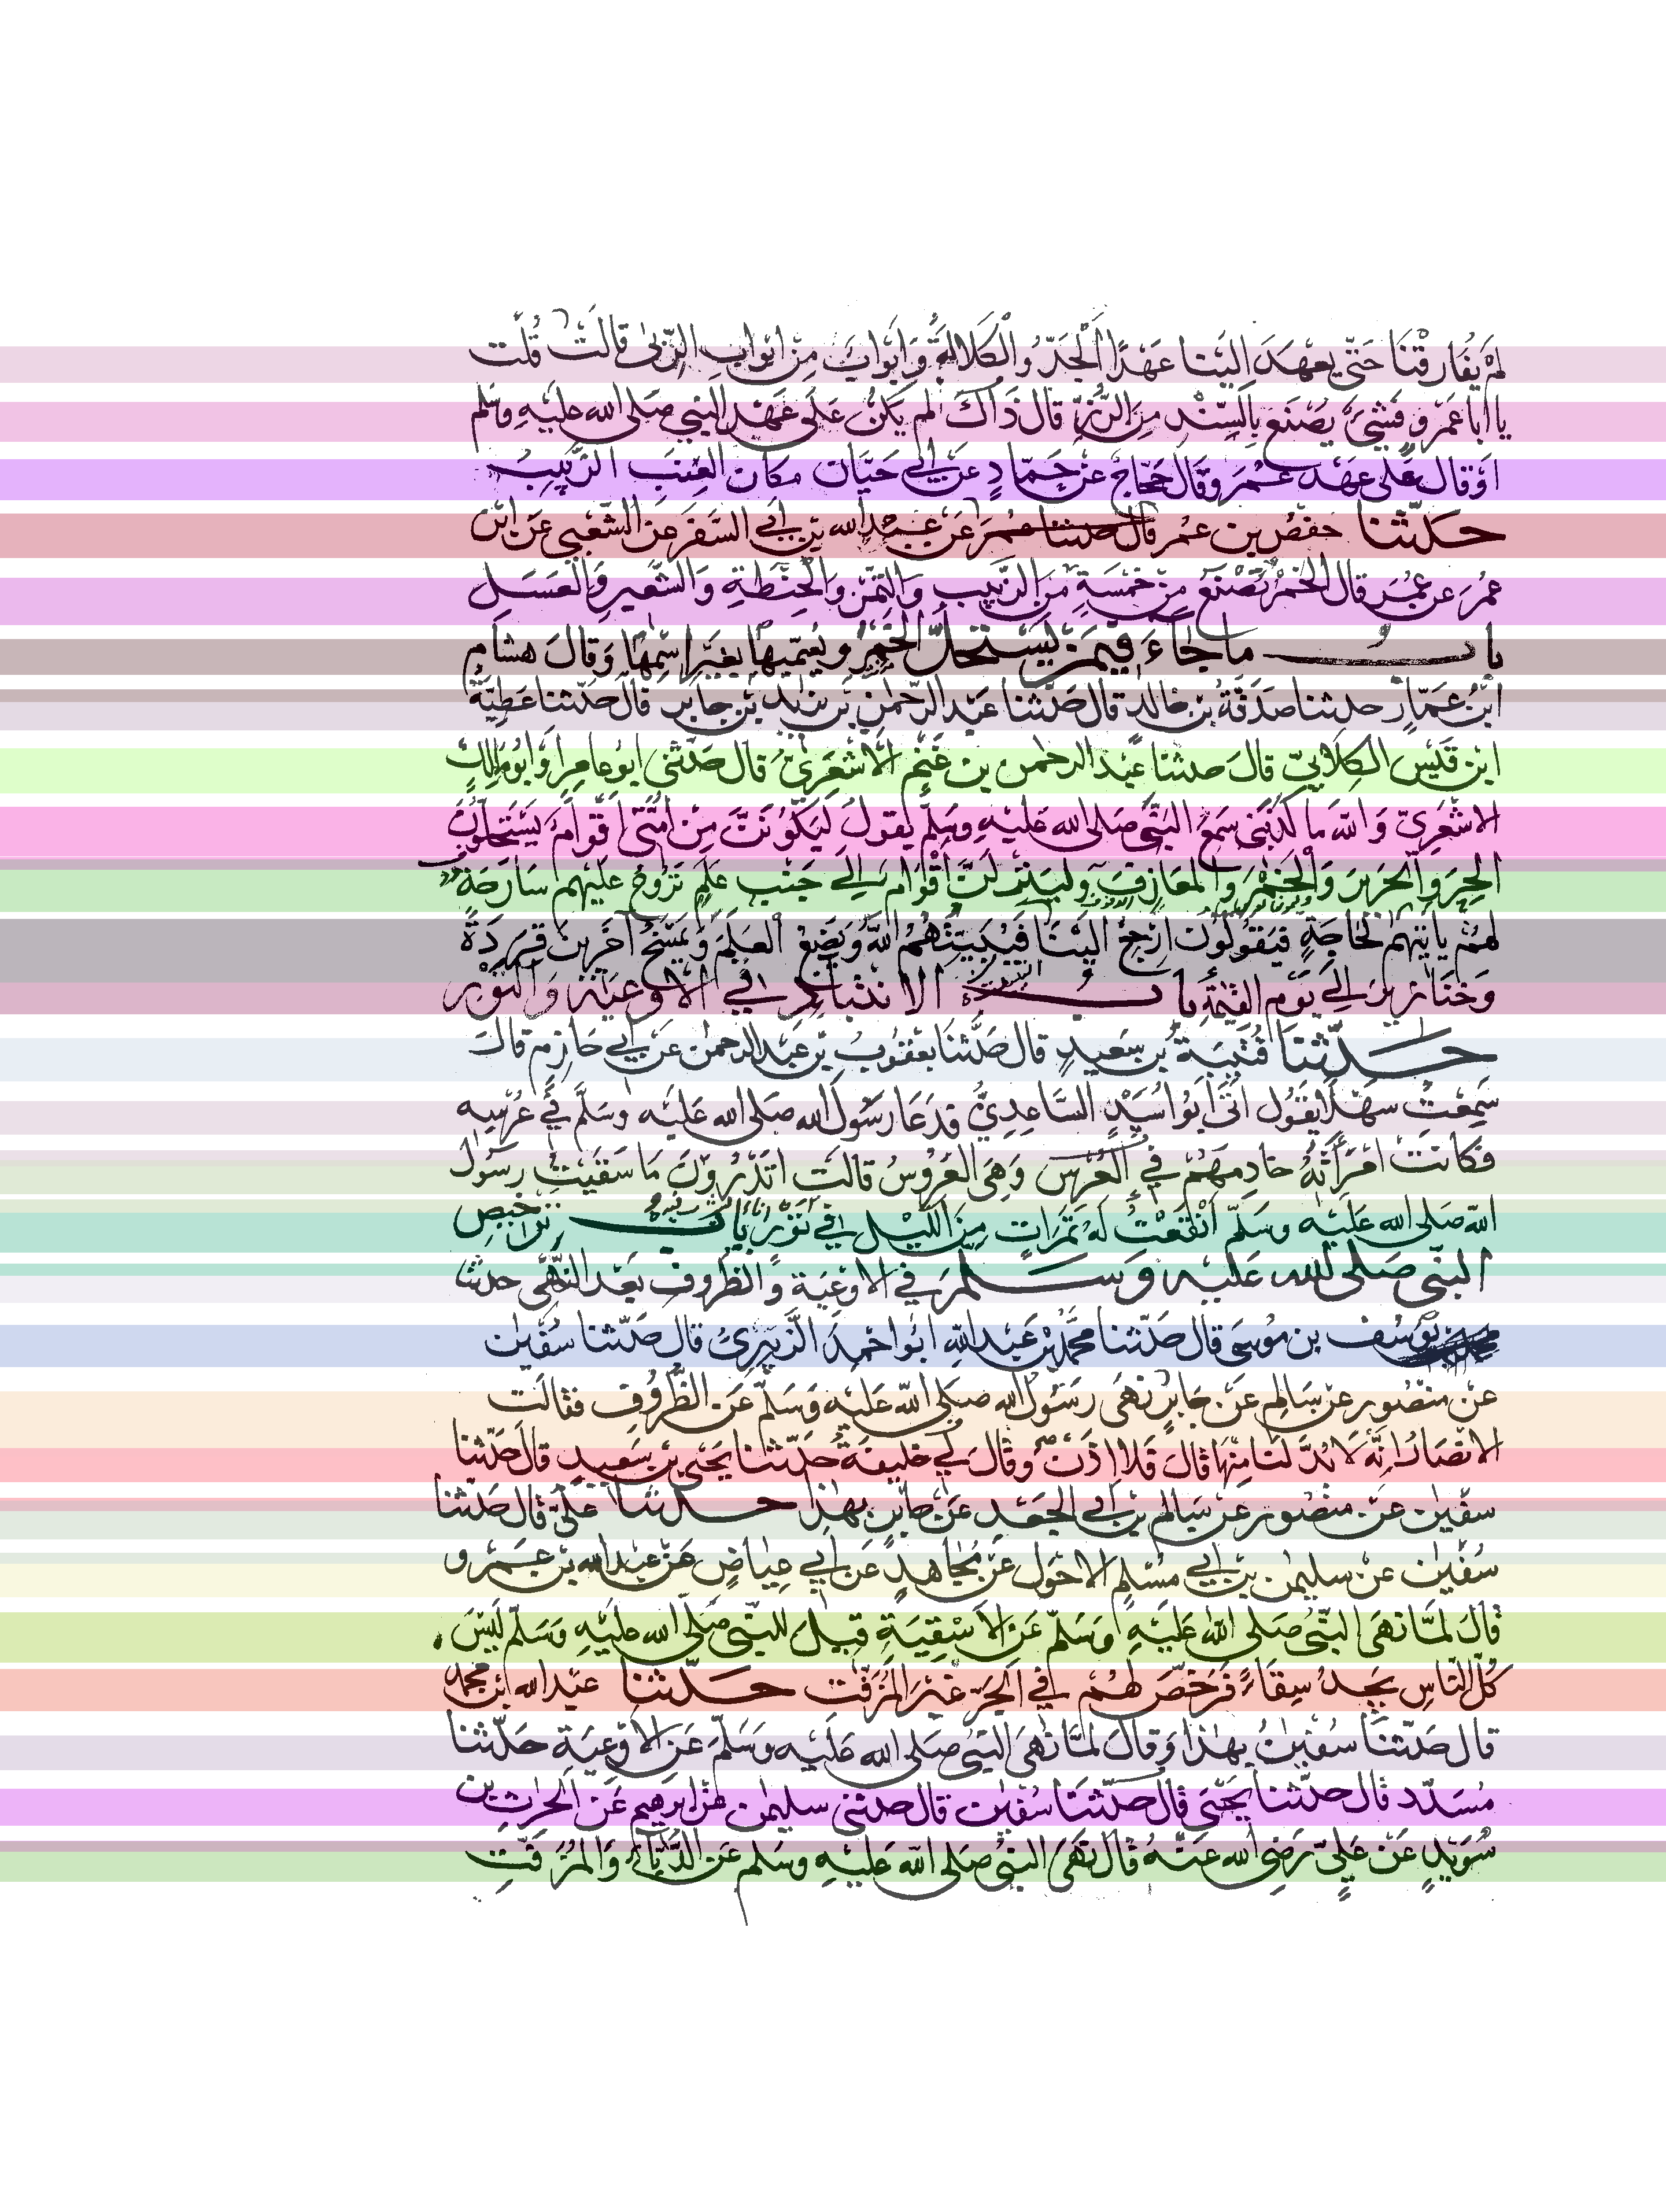 لم يفارقنا حتى يعهد الينا عهدا الجد والكلالة وابواب من ابواب الربى قالت قلت
يا ابا عمرو فشيء يصنع بالسند من الرز قال ذاك لم يكن على عهد النبي صلى الله عليه وسلم
او قال على عهد عمر وقال حجاج عن حماد عن ابي حيان مكان العنب الزبيب
حدثنا حفص بن عمر قال حدثنا عمر عن عبد الله بن ابي السفر عن الشعبي عن ابن
عمر عن عمر قال الخمر تصنع من خمسة من الزبيب والتمر والحنطة والشعير والعسل
باب ما جاء فيمن يستحل الخمر ويسميها بغير اسمها وقال هشام
ابن عمار حدثنا صدقة بن خالد قال حدثنا عبد الرحمن بن يزيد بن جابر قال حدثنا عطية
ابن قيس الكلابي قال حدثنا عبد الرحمن بن غنم الاشعري قال حدثني ابو عامر او ابو مالك
الاشعري والله ما كذبني سمع النبي صلى الله عليه وسلم يقول ليكونن من امتي اقوام يستحلون
الحر والحرير والخمر والمعازف ولينزلن اقوام الى جنب علم تروح عليهم سارحة
لهم ياتيهم لحاجة فيقولون ارجع الينا فيبيتهم الله ويضع العلم ويمسخ آخرين قردة
وخنازير الى يوم القيمة باب الانتباذ في الاوعية والتور
حدثنا قتيبة بن سعيد قال حدثنا يعقوب بن عبد الرحمن عن ابي حازم قال
سمعت سهلا يقول اتى ابو اسيد الساعدي فدعا رسول الله صلى الله عليه وسلم في عرسه
فكانت امراته خادمهم في العرس وهي العروس قالت اتدرون ما سقيت رسول
الله صلى الله عليه وسلم انقعت له تمرات من الليل في تور باب ترخيص
النبي صلى الله عليه وسلم في الاوعية والظروف بعد النهي حدثنا
يوسف بن موسى قال حدثنا محمد بن عبد الله ابو احمد الزبيري قال حدثنا سفين
عن منصور عن سالم عن جابر نهى رسول الله صلى الله عليه وسلم عن الظروف فقالت
الانصار انه لا بد لنا منها قال فلا اذن وقال لي خليفة حدثنا يحيى بن سعيد قال حدثنا
سفين عن منصور عن سالم بن ابي الجعد عن جابر بهذا حدثنا علي قال حدثنا
سفين عن سليمن بن ابي مسلم الاحول عن مجاهد عن ابي عياض عن عبد الله بن عمرو
قال لما نهى النبي صلى الله عليه وسلم عن الاسقية قيل للنبي صلى الله عليه وسلم ليس
كل الناس يجد سقاء فرخص لهم في الجر غير المزفت حدثنا عبد الله ابن محمد
قال حدثنا سفين بهذا وقال لما نهى النبي صلى الله عليه وسلم عن الاوعية حدثنا
مسدد قال حدثنا يحيى قال حدثنا سفين قال حدثني سليمن عن ابرهيم عن الحرث بن
سويد عن علي رضي الله عنه قال نهى النبي صلى الله عليه وسلم عن الدباء والمزفت